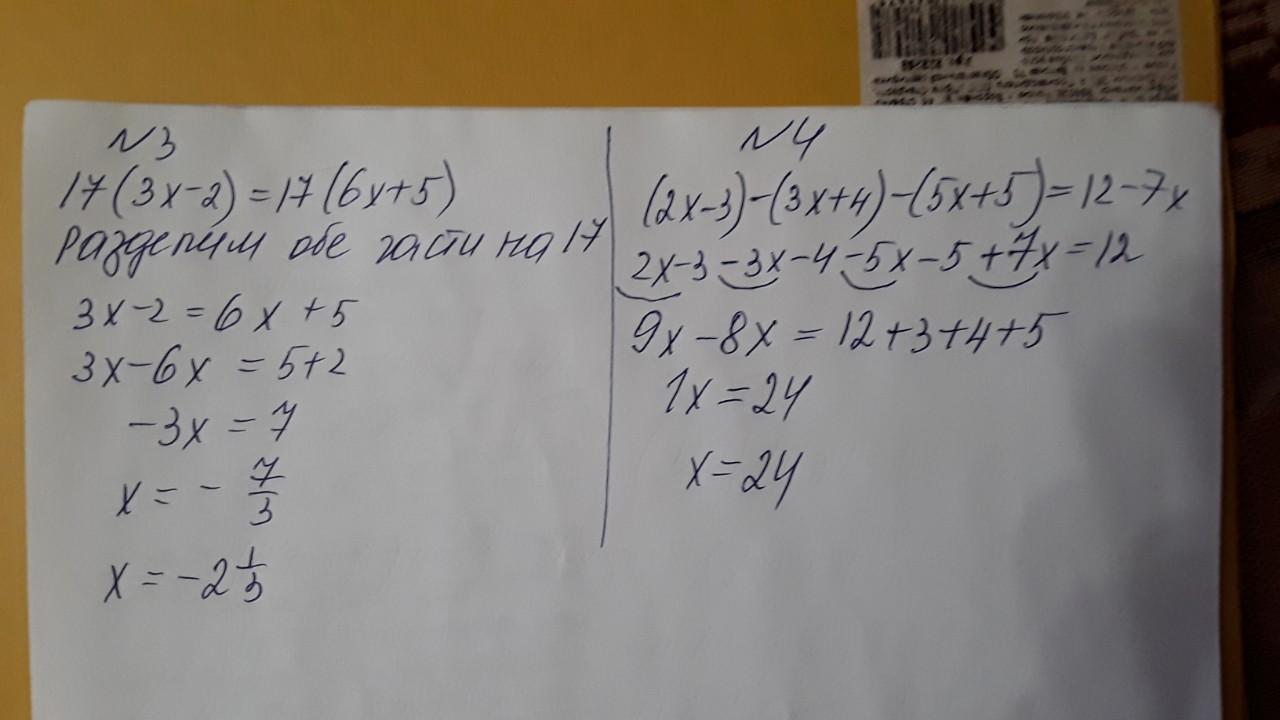 №3
17(3x-2)=17(6x+5)
Разделим обе части на 17
3x-2=6x+5
3x-6x=5+2
-3x=7
x=-7/3
x=-2 1/3
№4
(2x-3)-(3x+4)-(5x+5)=12-7x
2x-3-3x-4-5x-5+7x=12
9x-8x=12+3+4+5
1x=24
x=24